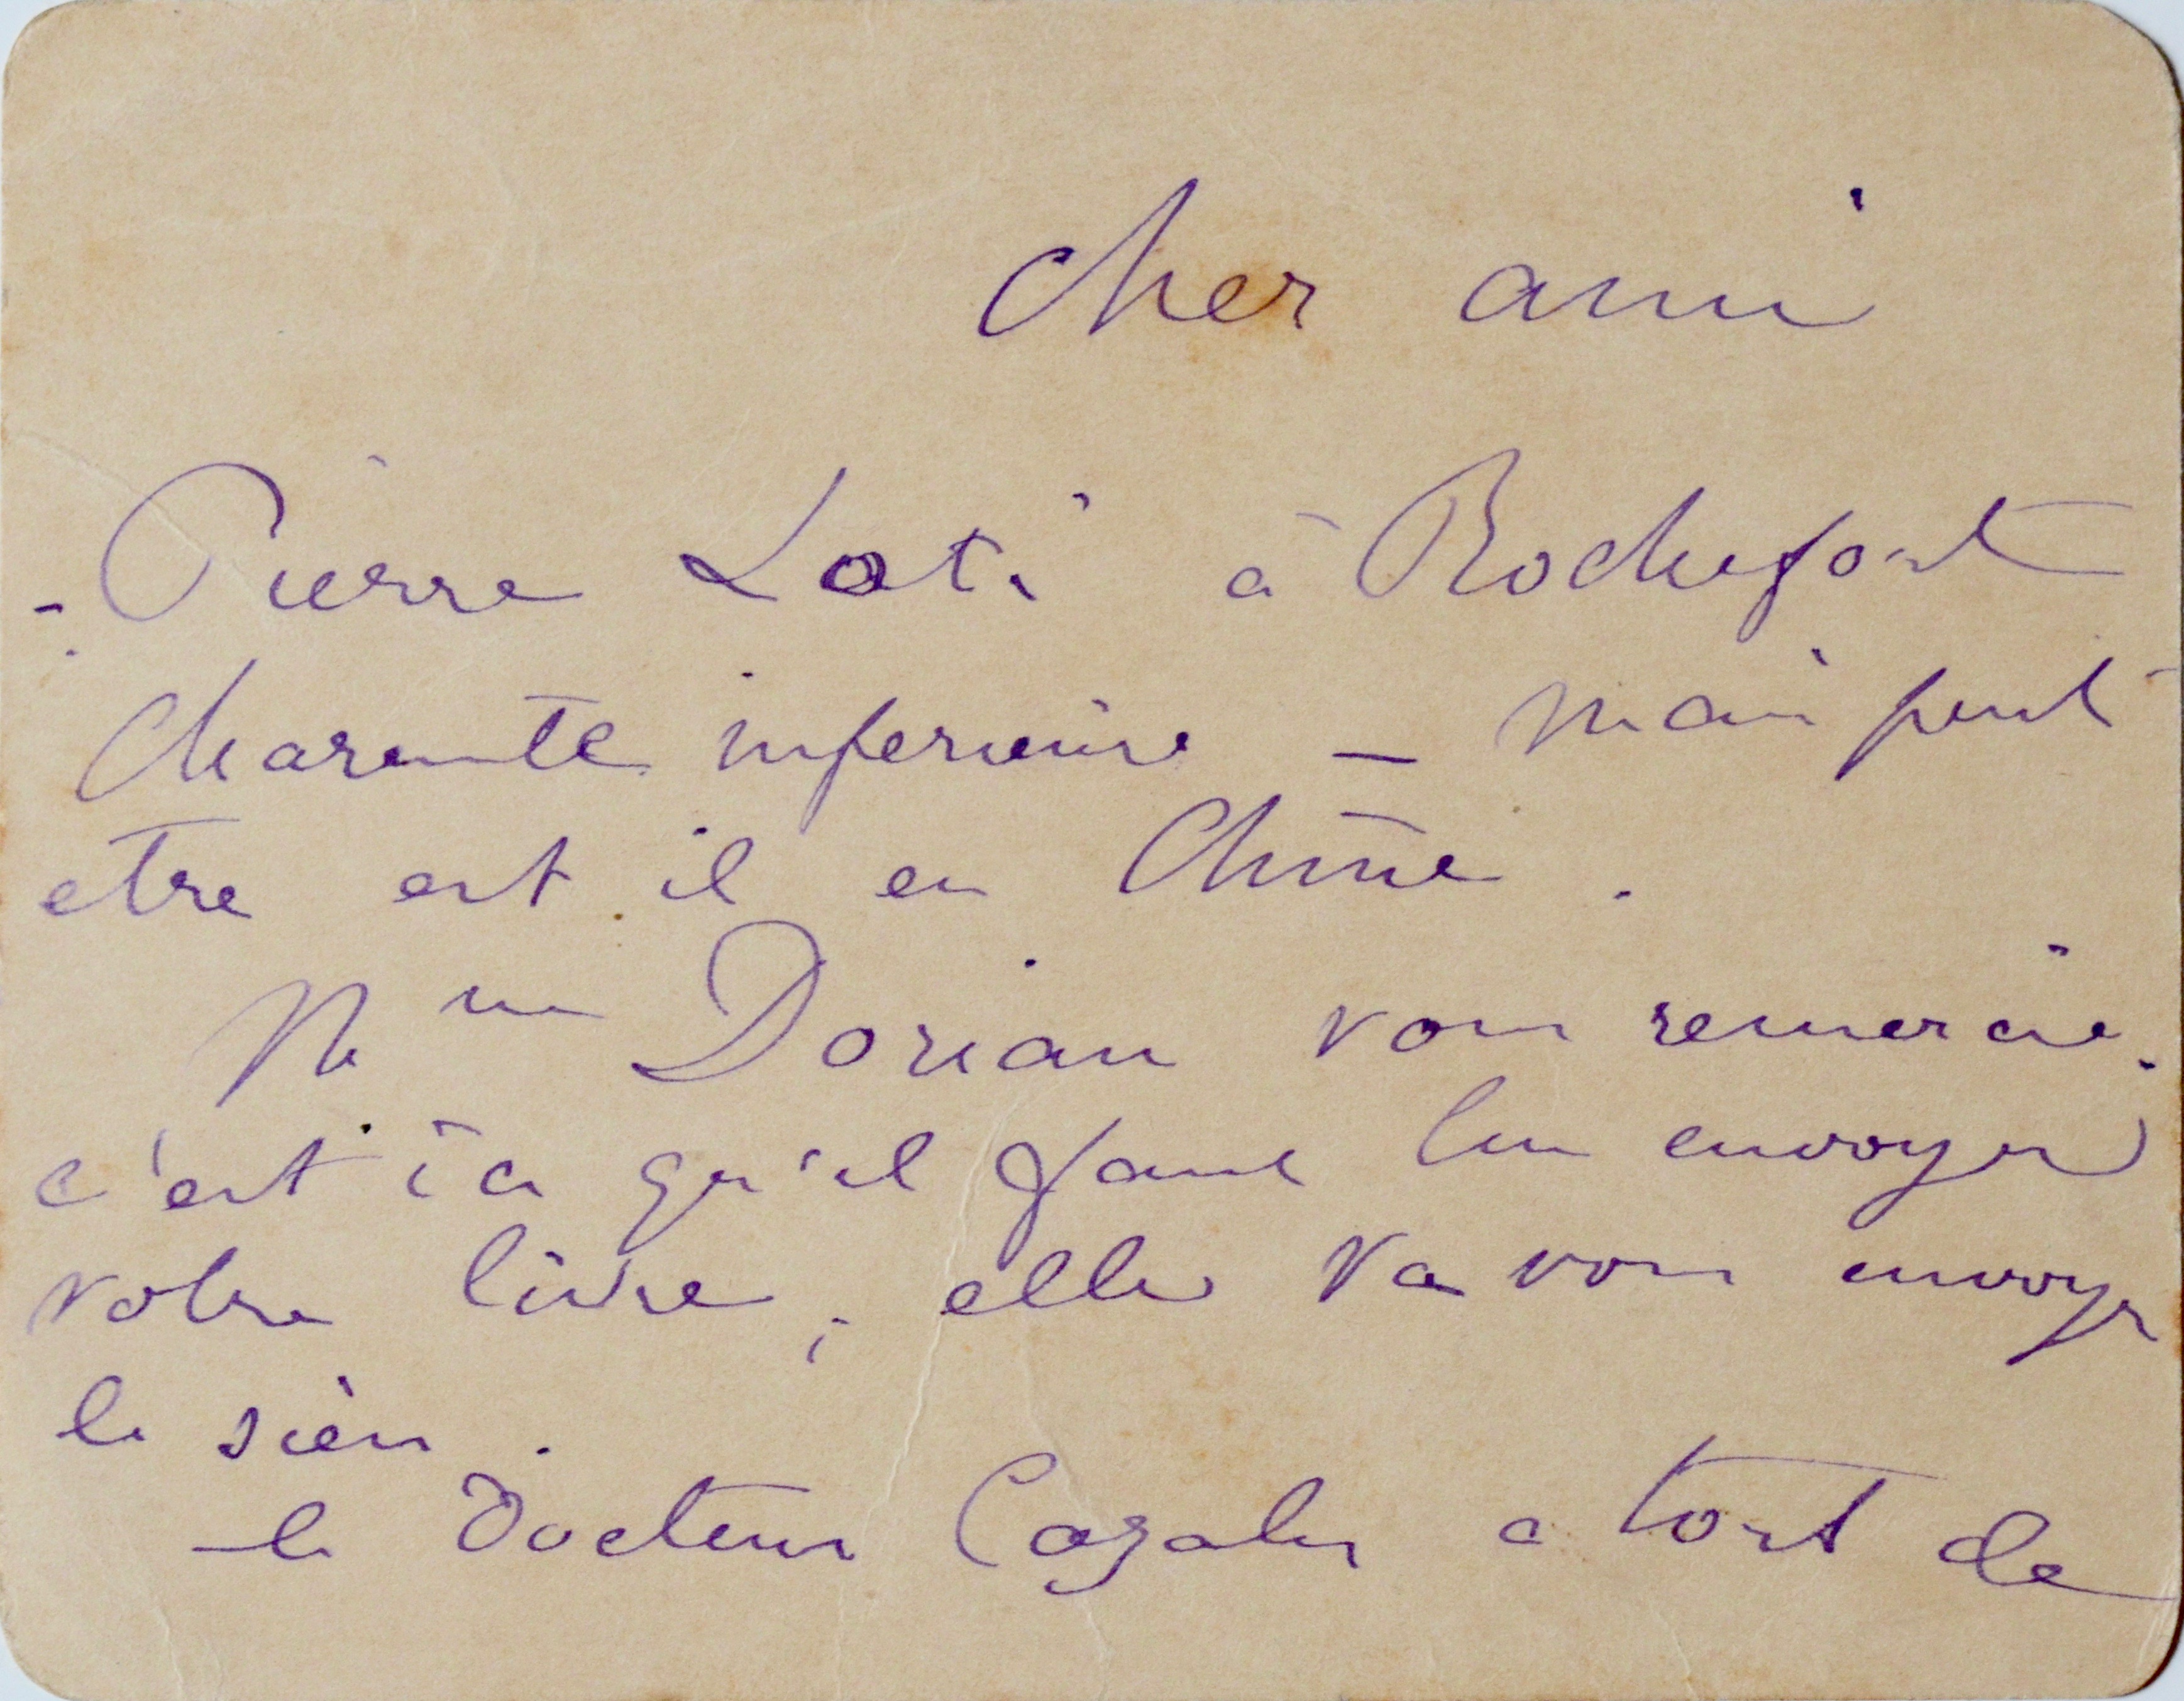 Cher ami
- Pierre Loti à Rochefort
Charente inferieure - mais peut
etre est il en Chine.
Mme Dorian vous remercie.
c'est ici qu'il faut lui envoyer
votre livre; elle va vous envoyer
le sien.
le Docteur Cazalis a tort de